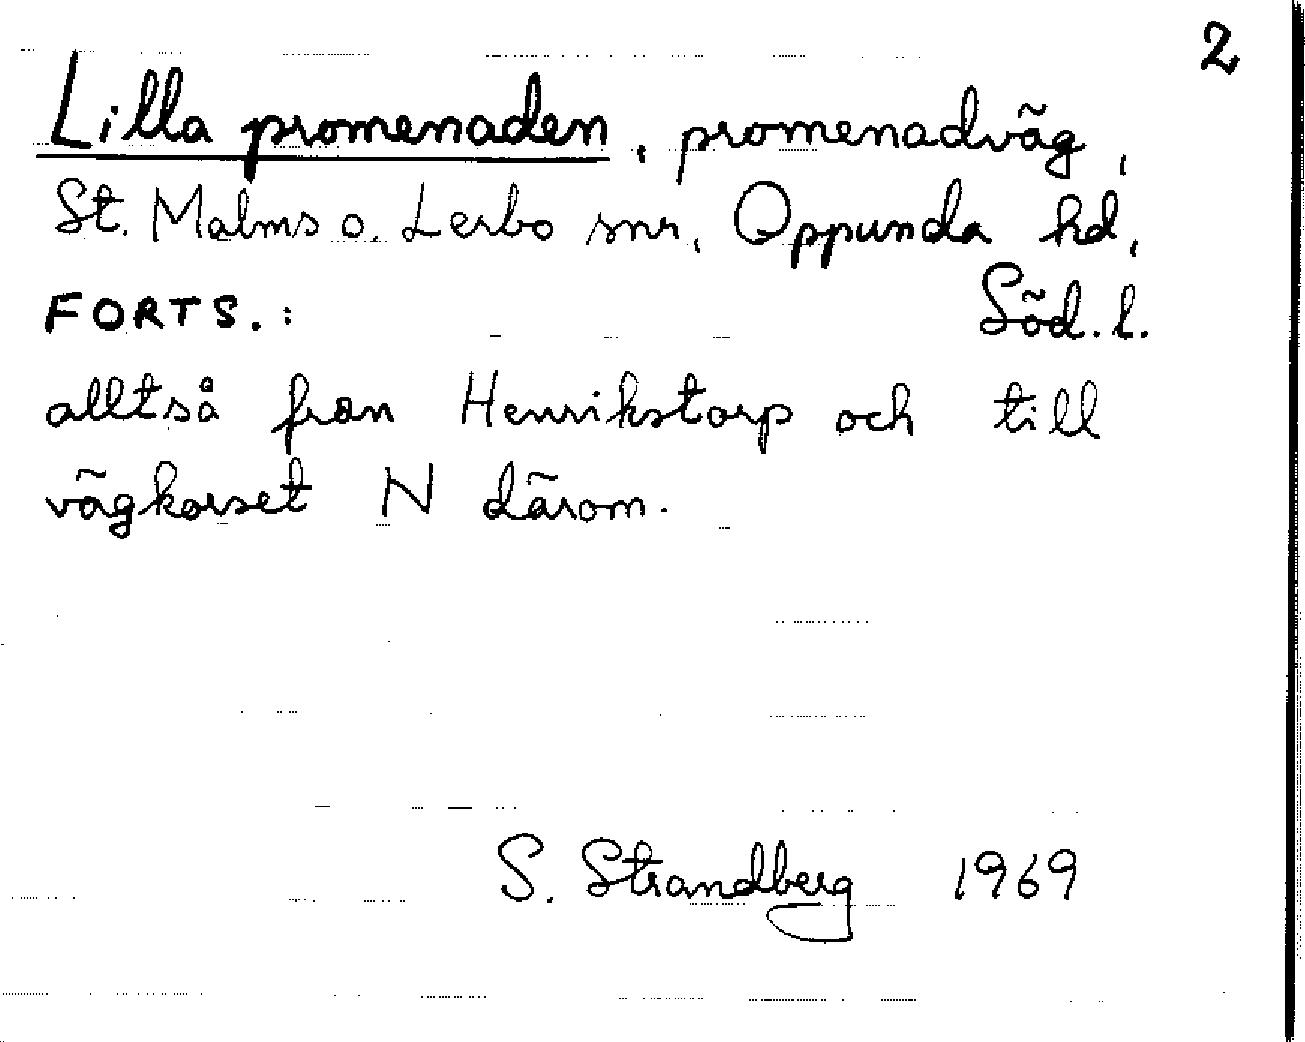 2
Lilla promenaden, promenadväg,
St. Malms o. Lerbo snr, Oppunda hd,
Söd. l.
FORTS.:
alltså från Henrikstorp och till
vägkorset N därom.
S. Strandberg 1969